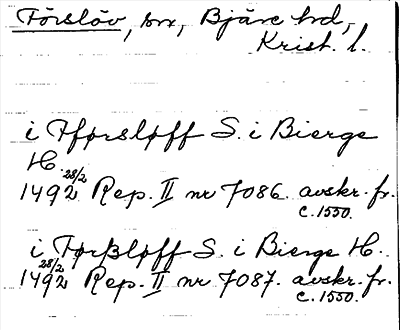 Förslöv, sn, Bjäre hd,
Krist. l.
i Tførsløff S. i Bierge
H.
28/2
1492 Rep. II nr 7086. avskr. fr.
c. 1550.
i Tørßløff S. i Bierge H.
28/2
1492 Rep. II nr 7087. avskr. fr.
c. 1550.